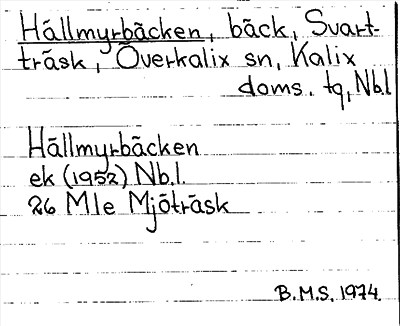 Hällmyrbäcken, bäck, Svart-
träsk, Överkalix sn, Kalix
doms. tg, Nb.l
Hällmyrbäcken
ek (1952) Nb.l.
26 M le Mjöträsk
B.M.S. 1974.